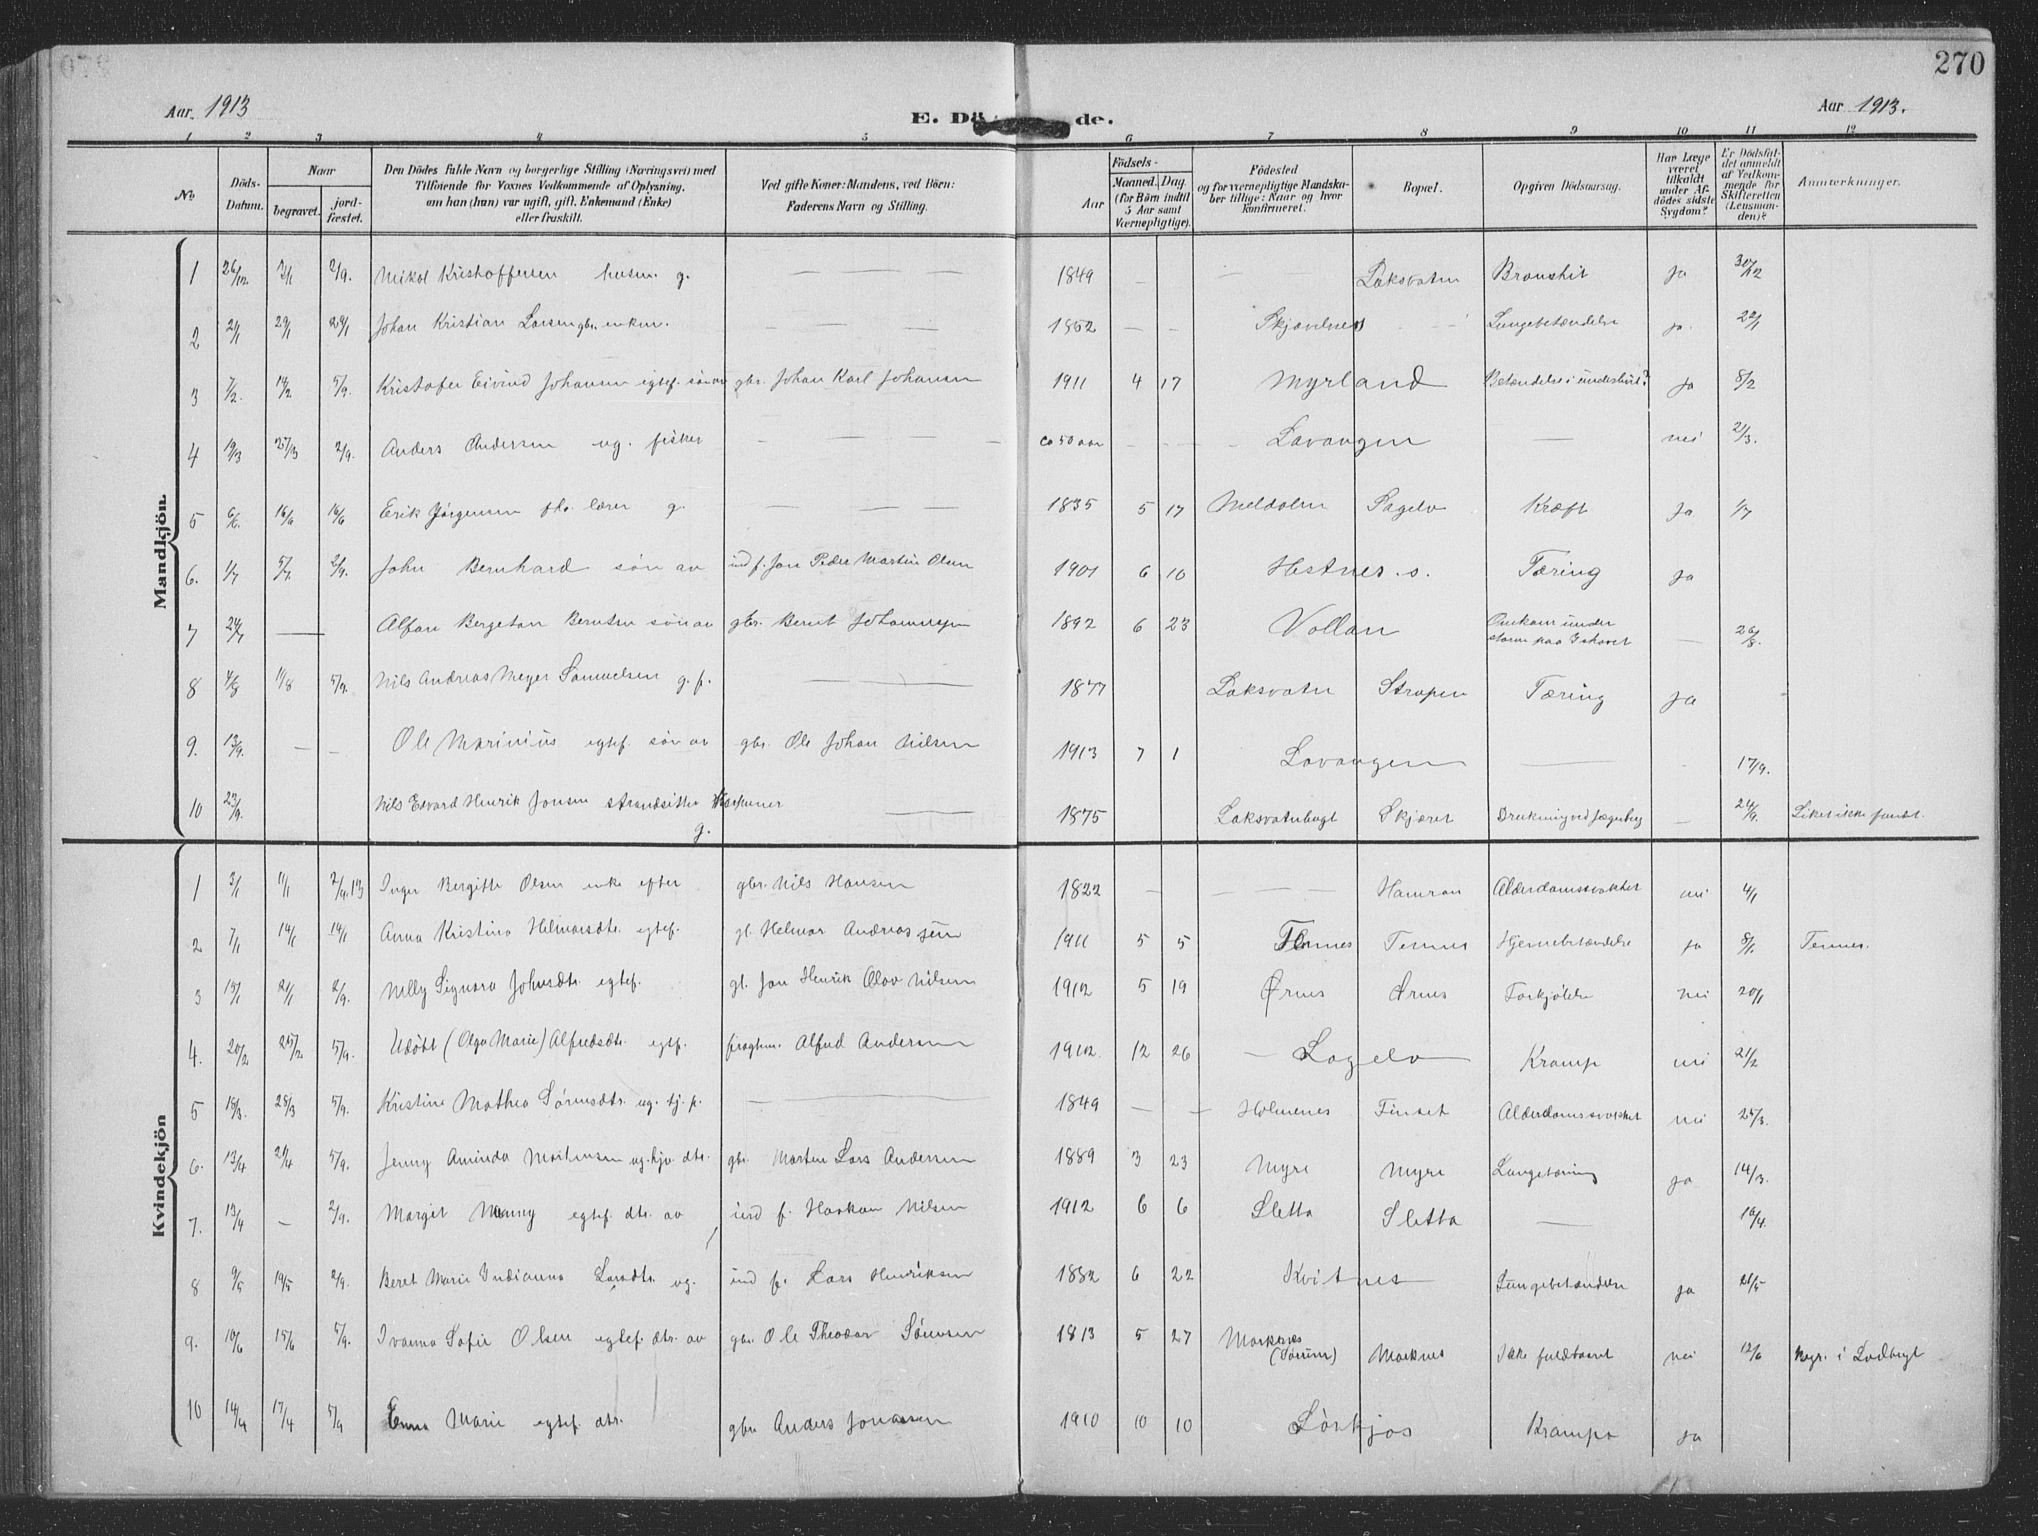 270
Aar 1913
E. Dö de.
Aar 1913.
1 2 3 4 5 6 7 8 9 10 11 12
No.
Döds-Datum.
Naar
begravet.
jord-fæstet.
Den Dödes fulde Navn og borgerlige Stilling (Næringsvei) med
Tilföiende for Voxnes Vedkommende af Oplysning,
om han (hun) var ugift, gift, Enkemand (Enke)
eller fraskilt.
Ved gifte Koner: Mandens, ved Börn:
Faderens Navn og Stilling.
Födsels-
Aar
Maaned. Dag.
(for Börn indtil
5 Aar samt
Værnepligtige).
Födested
og for værnepligtige Mandska-
ber tillige: Naar og hvor
konfirmeret.
Bopæl.
Opgiven Dödsaarsag.
Har Læge
været
tilkaldt
under Af-
dödes sidste
Sygdom?
Er Dödsfal-
det anmeldt
af Vedkom-
mende for
Skifteretten
(Lensman-
den)?
Anmærkninger.
Mandkjön.
1 26/12 2/9. Mikal Kristoffersen husm. g. 1849 Laksvatn Bronshit ja 30/12
2 21/1 29/1 29/1 Johan Kristian Larsen gbr. enkm. 1852 Skjævelnes Lungebetændelse ja 22/1
3 7/2. 14/2 5/9. Kristofer Eivind Johansen egtef. søn av gbr. Johan Karl Johansen 1911 4 17 Myrland Betændelse i underlivet? ja 8/2
4 19/3 27/3 2/9. Anders Andersen ug. fisker ca 50 aar Lavangen nei 21/3.
5 6/6. 16/6 16/6 Erik Jørgensen lærer g. 1835 5 17 Meldalen Sagelv Kræft Ja 1/7
6. 1/7 5/7. 2/9. John Bernhard søn av ind f. Jon Peder Martin Olsen 1901 6 10 Hestnes. s. Tæring ja
7 24/7 Alfon Bergeton Berntsen søn av gbr. Bernt Johannesen 1892 6 23 Vollan Omkom under storm paa Ishavet 26/8.
8 4/8 11/8 5/9. Nils Andreas Meyer Samuelsen g. f. 1877 Laksvatn Strupen Tæring ja
9. 13/9. Ole Marinius egtef. søn av gbr. Ole Johan Nilsen 1913 7 1 Lavangen 17/9.
10 23/9. Nils Edvard Henrik Jonsen strandsitter g. 1875 Laksvatnbugt Skjæret Drukning ved Jægerberg 24/9. Liket ikke fundet.
Kvindekjön
1 3/1 11/1 2/9.13 Inger Bergitte Olsen enke efter gbr. Nils Hansen 1822 Hamran Alderdomssvakhet nei 4/1
2 7/1 14/1 14/1 Anna Kristina Helmersdtr. egtef. gl. Helmer Andreassen 1911 5 5 Tennes Tennes Hjernebetændelse ja 8/1. Tennes.
3 19/1 21/1 2/9. Nelly Signora Johnsdtr. egtef. gl. Jon Henrik Olav Nilsen 1912 5 19 Ørnes Ørnes Forkjølelse nei 20/1
4. 20/2 25/2 5/9. Udøbt (Olga Marie) Alfredsdtr. egtf. Alfred Andersen 1912. 12 26 Sagelv Krampe nei 21/2
5 15/3. 25/3 5/9. Kristine Mathea Sørensdtr. ug. tj. p. 1849 Holmenes Finset Alderdomssvakhet nei 25/3.
6. 13/4 21/4 5/9. Jenny Aminda Mortensen ug. hjv. dtr. gbr. Morten Lars Andersen 1889 3 23 Myre Myre Lungetæring ja 14/3.
7. 13/4 2/9. Margit Menny egtef. dtr. av ind f. Haakon Nilsen 1912 6 6 Sletta Sletta 16/4.
8 9/5 19/5 2/9. Beret Marie Indianna Larsdtr. ug. ind f. Lars Henriksen 1882 6 22 Kvitnes Lungebetændelse ja 21/5
9. 10/6 15/6 5/9. Ivanna Sofie Olsen egtef. dtr. av gbr. Ole Theodor Sørensen 1813 5 27 Marknes (Sørum) Marknes Ikke fuldbaaret nei 12/6 Begr. i Lodbugt
10 14/4 17/4 5/9 Enna Marie egtef. dtr. gbr. Anders Jonassen 1910 10 10 Sørkjos Krampe ja